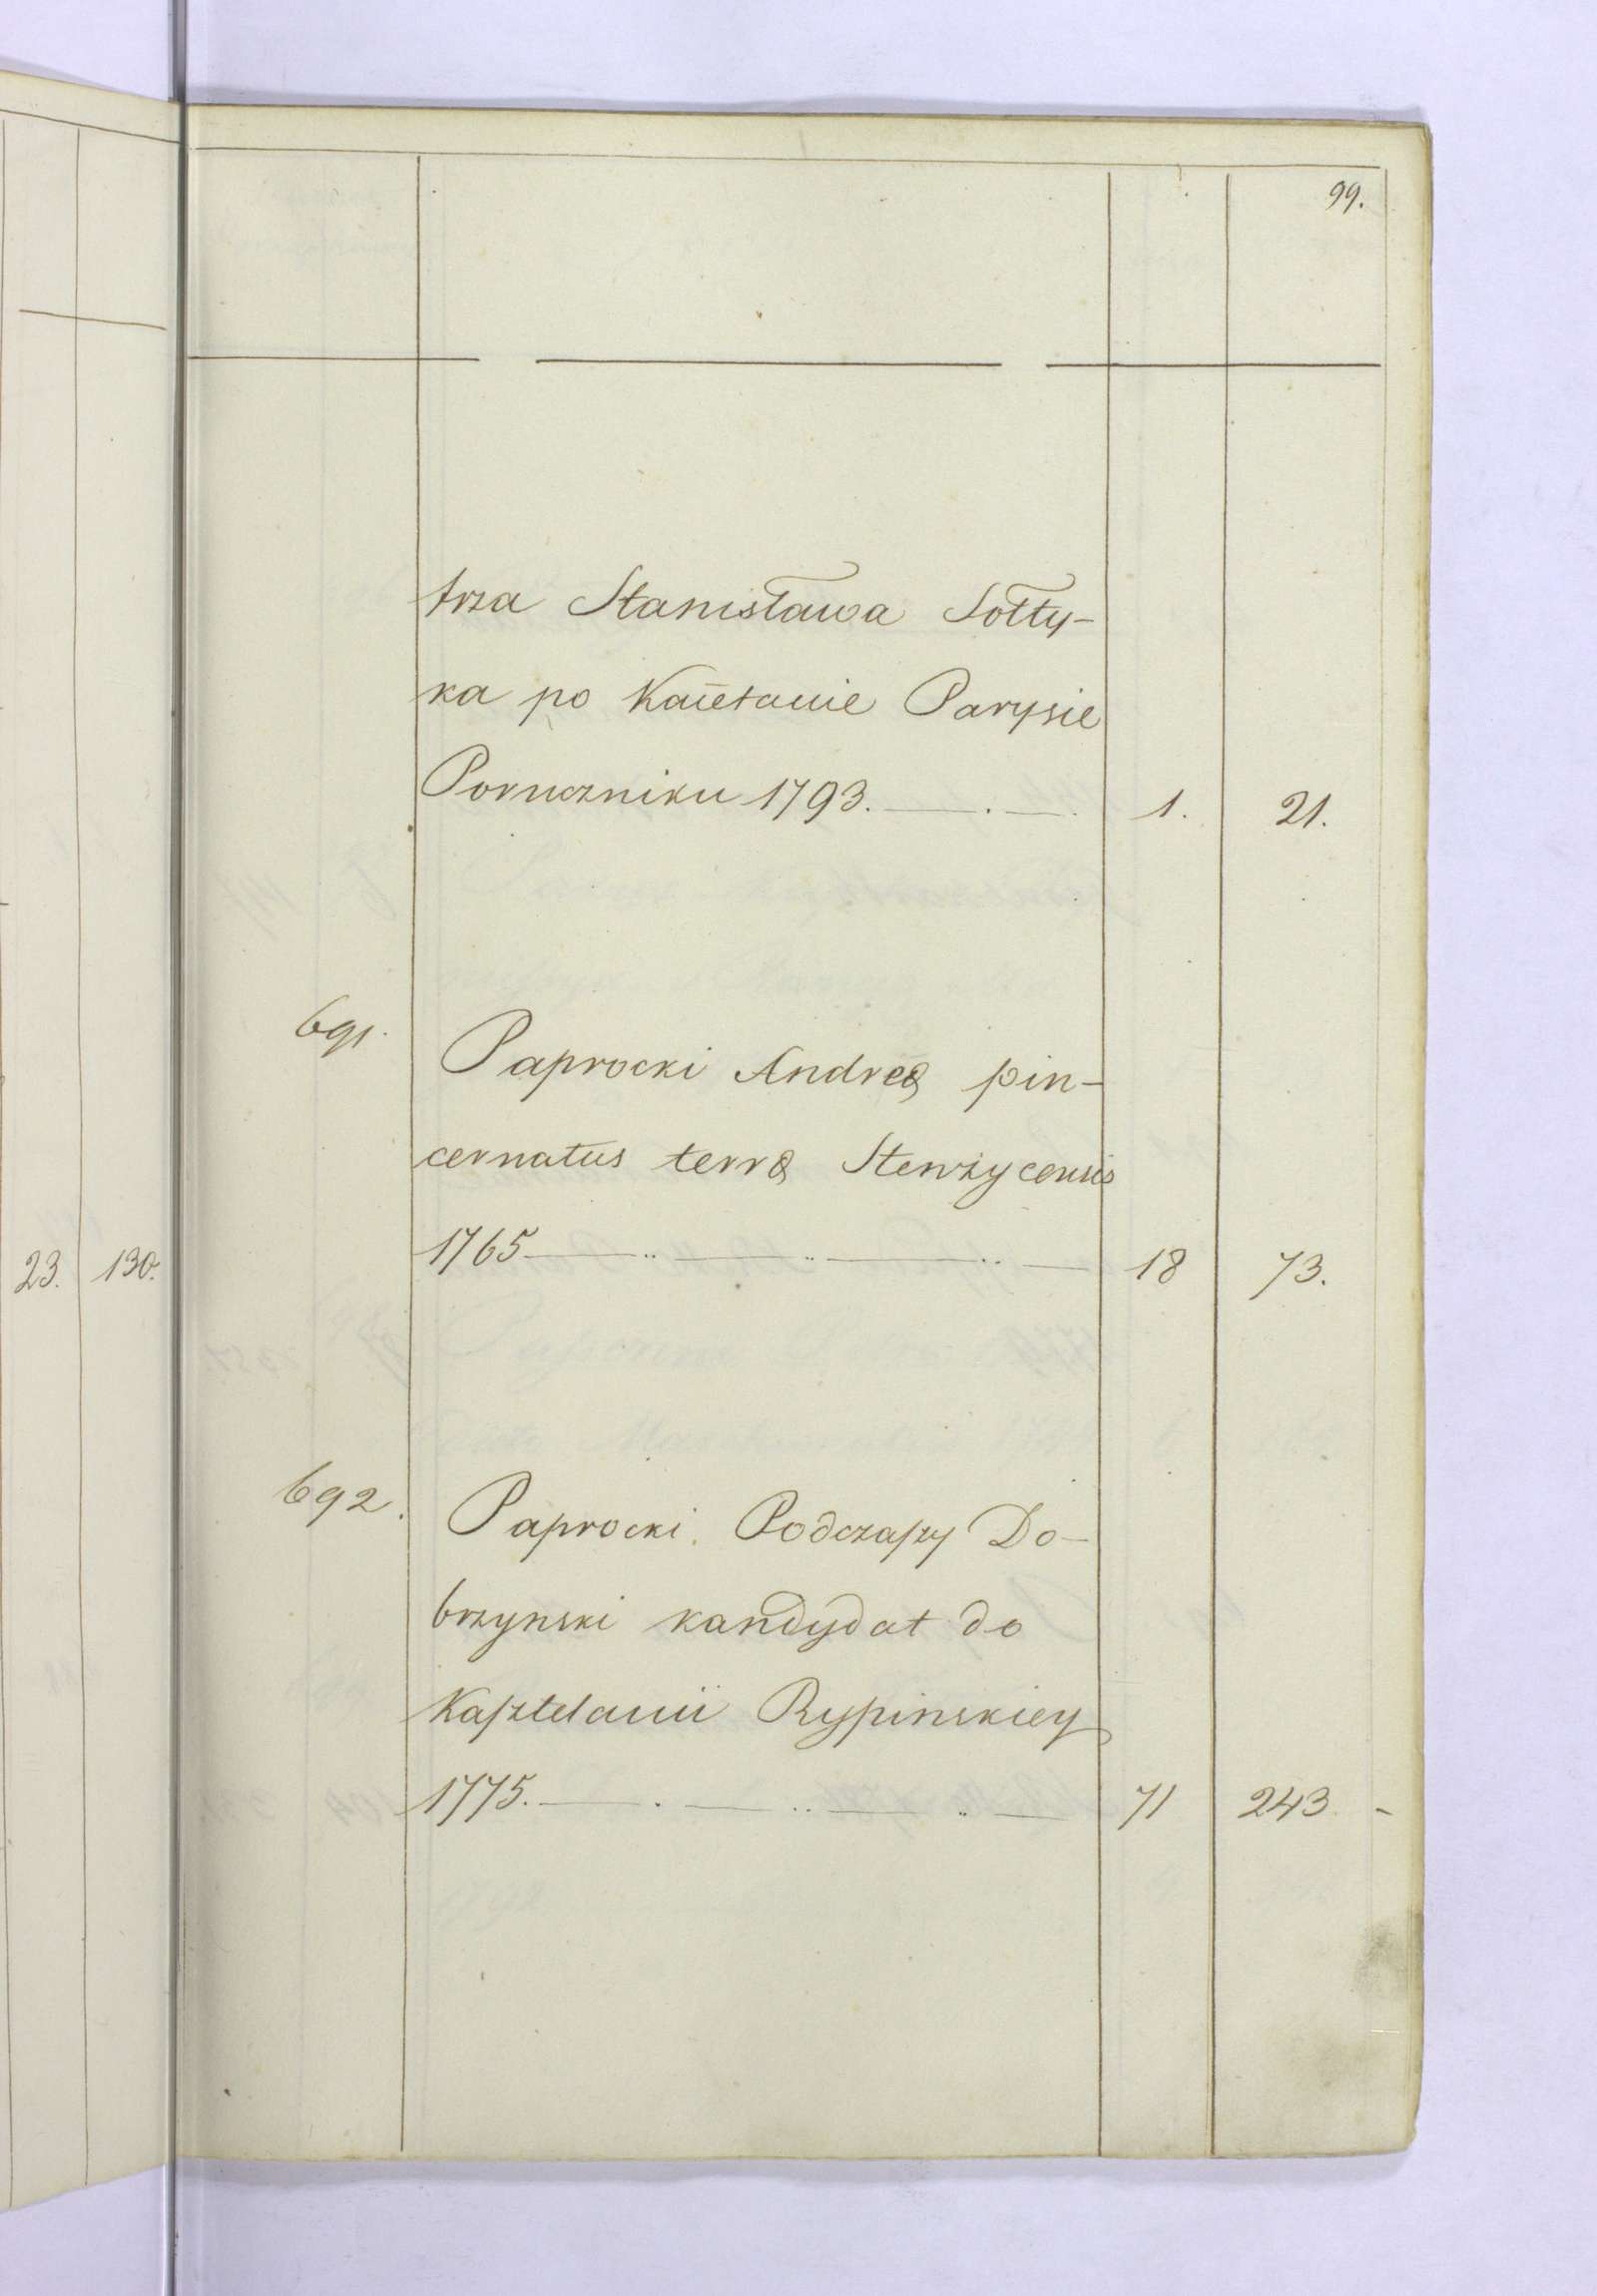 99.
trza Stanisława Sołty-
ka po Kaietanie Parysie
Poruczniku 1793. 1. 21.
691. Paprocki Andreæ pin-
cernatus terræ Stenżycensis
1765 18 73.
23. 130.
692. Paprocki. Podczaszy Do-
brzynski kandydat do
Kasztelanii Rypinskiey
1775. 71 243